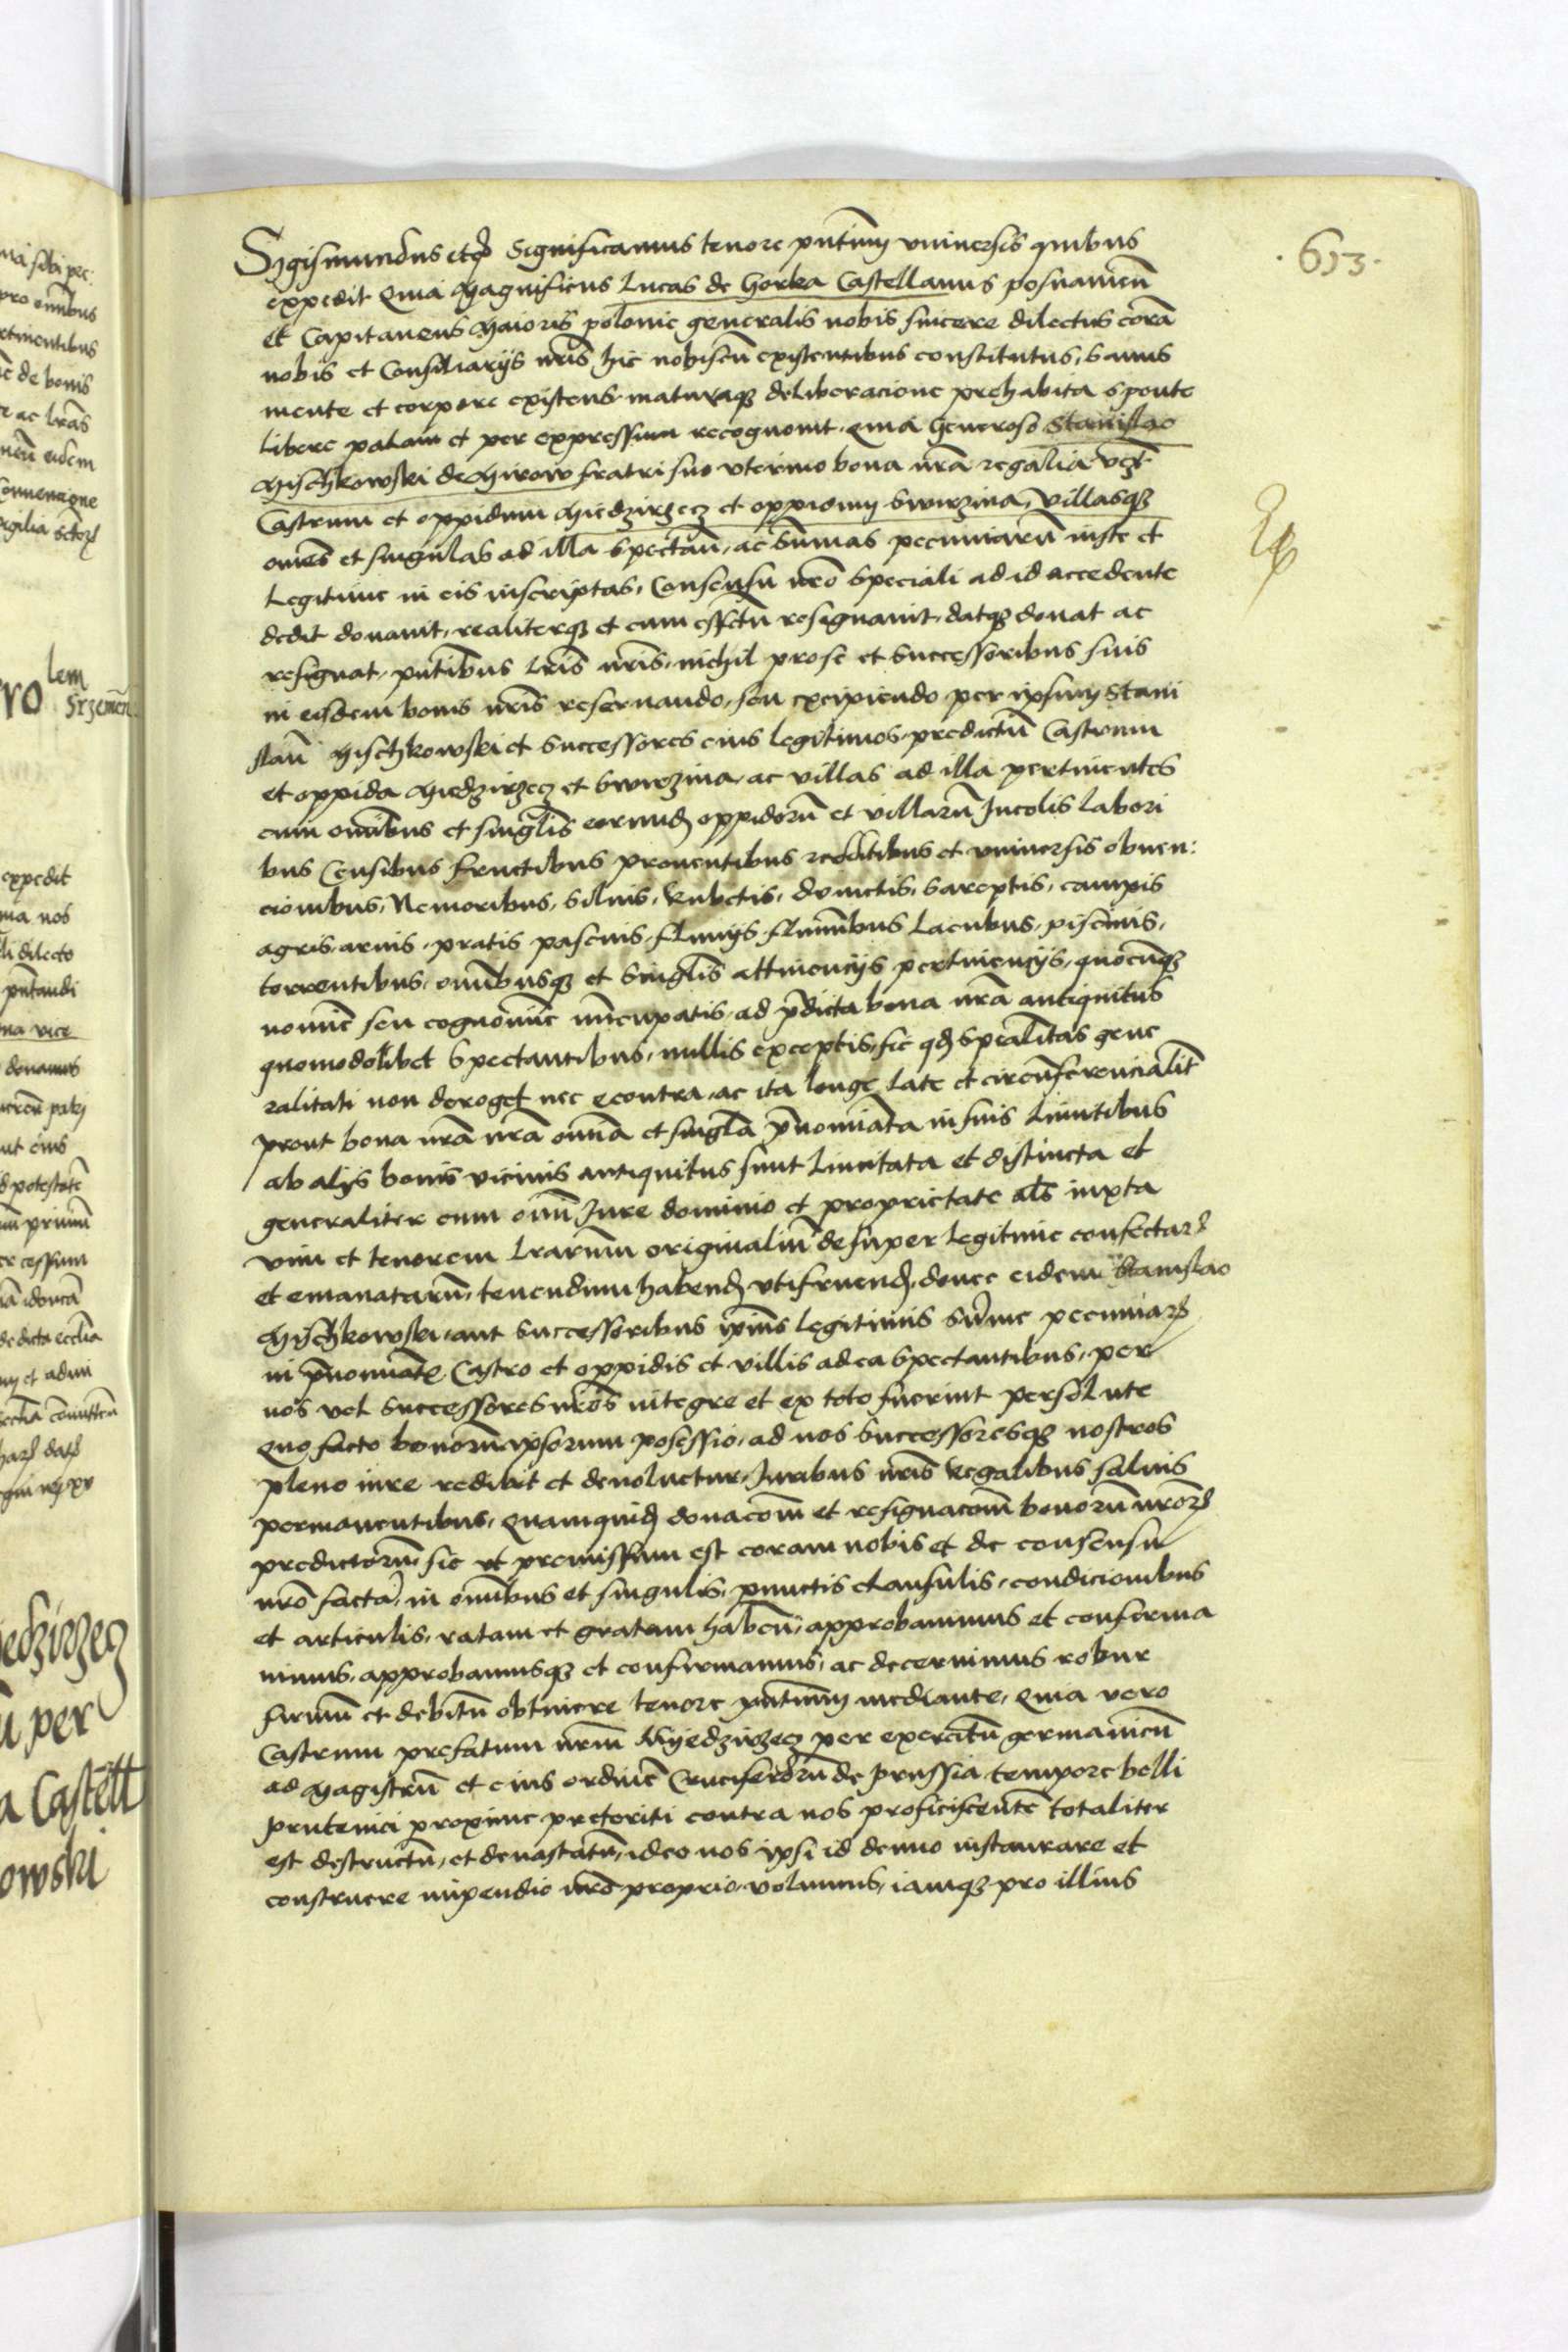 .653.
Sigismundus etc Significamus tenore pñtium vniuersis quibus
expedit Quia Magnificus Lucas de Gorka Castellanus posnanieñ
et Capitaneus Maioris polonie generalis nobis sincere dilectus corã
nobis et Consiliarijs nr̃is hic nobiscũ existentibus constitutus, sanus
mente et corpore existens maturaq3 deliberacione prehabita sponte
libere palam et per expressum recognouit, Quia Generoso Stanislao
Mischkowski de Mirow fratri suo vterino bona nr̃a regalia vcz̃
Castrum et oppidum Miedzirzecz et oppidum Swirzina, Villasq3
omẽs et singulas ad illa spectañ, ac sũmas pecuniarũ iuste et
Legitime in eis inscriptas, Consensu nr̃o speciali ad id accedente
dedit donauit, realiterq3 et cum effc̃tu resignauit, datq3 donat ac
resignat, pñtibus Lr̃is nr̃is, nichil pro se et Successoribus suis
in eisdem bonis nr̃is reseruando, seu excipiendo per ipsum Stani
slaũ Mischkowski et Successores eius legitimos, predictũ Castrum
et oppida Miedzirzecz et Swirzina, ac villas ad illa pertinentes
cum om̃ibus et singl̃is eorund̃ oppidorũ et villarũ Incolis Labori
bus Censibus fructibus prouentibus redditibus et vniuersis obuen:
cionibus, Nemoribus, Siluis, Rubetis, quinctis, sareptis, campis
agris, aruis, pratis pascuis, fluuijs, fluminibus Lacubus, piscinis,
torrentibus, om̃ibusq3 et Singl̃is attinencijs pertinencijs, quocũq3
nomiẽ seu cognomiẽ nũcupatis, ad p̃dicta bona nr̃a antiquitus
quomodolibet Spectantibus, nullis exceptis, sic qd̃ spealitas gene
ralitati non deroget nec econtra, ac ita longe Late et circũferencialit̃
prout bona nr̃a nr̃a omĩa et singl̃a p̃nomiata in suis Limitibus
ab alijs bonis vicinis antiquitus sunt Limitata et distincta et
generaliter cum om̃i Jure dominio et proprietate als̃ iuxta
vim et tenorem Lr̃arum originaliũ desuper Legitime confectar̃
et emanatarũ, tenendum habend̃ vtifruend̃, donec eidem Stanislao
Mischkowski, aut Successoribus ipĩus legitimis Sũme pecuniar̃
in p̃nomiat̃ Castro et oppidis et villis ad ea spectantibus, per
nos vel Successores nr̃os integre et ex toto fuerint persolute
Quo facto bonorũ ipsorum possessio, ad nos Successoresq3 nostros
pleno iure redibit et deuoluetur, Juribus nr̃is Regalibus saluis
permanentibus, Quamquid̃ donacom̃ et resignacom̃ bonorũ nr̃or̃
predictorũ, sic vt premissum est coram nobis et de consensu
nr̃o facta, in om̃ibus et singulis, punctis clausulis, condicionibus
et articulis, ratam et gratam habeñ, approbauimus et confirma
uimus, approbamusq3 et confirmamus, ac decernimus robur
firmũ et debitũ obtinere tenore pñtium mediante, Quia vero
Castrum prefatum nr̃m Myedzirzecz per exercitũ germanicũ
ad Magistrũ et eius ordinẽ Cruciferorũ de prussia tempore belli
prutenici proxime preteriti contra nos proficiscentẽ totaliter
est destructũ, et deuastatũ, ideo nos ipsi id denuo instaurare et
construere impendio nr̃o proprio, volumus, iamq3 pro illius